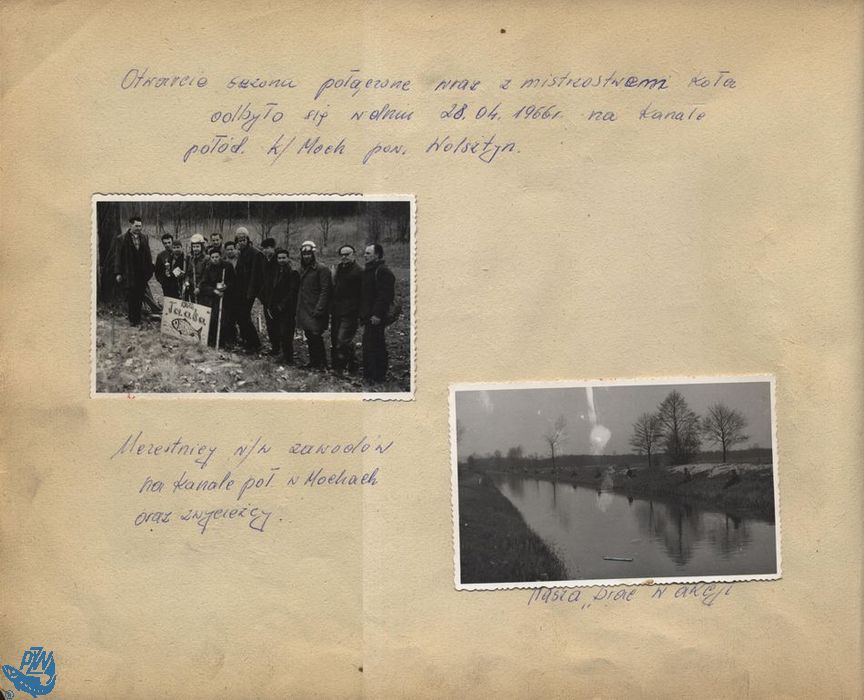 Otwarcie sezonu połączone wraz z mistrzostwami koła
odbyło się w dniu 28.04.1966r. na kanale
połód. k/Moch pow. Wolsztyn.
Uczestnicy n/w zawodów
na kanale poł. w Mochach
oraz zwycięzcy.
Nasza „brać w akcji
PZW